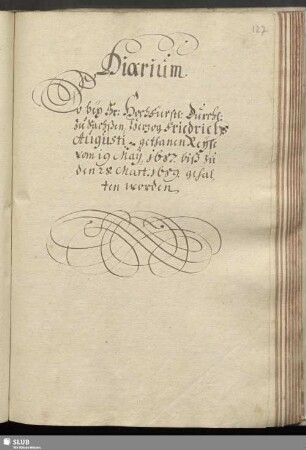 127
Diarium.
So bey Sr: Hochfürstl: Durchl:
zu Sachßen, Herzog Friedrichs
Augusti, gethanen Reyße
vom 19 May, 1687. biß zu
den 28 Mart: 1689. gehal
ten worden.
SLUB